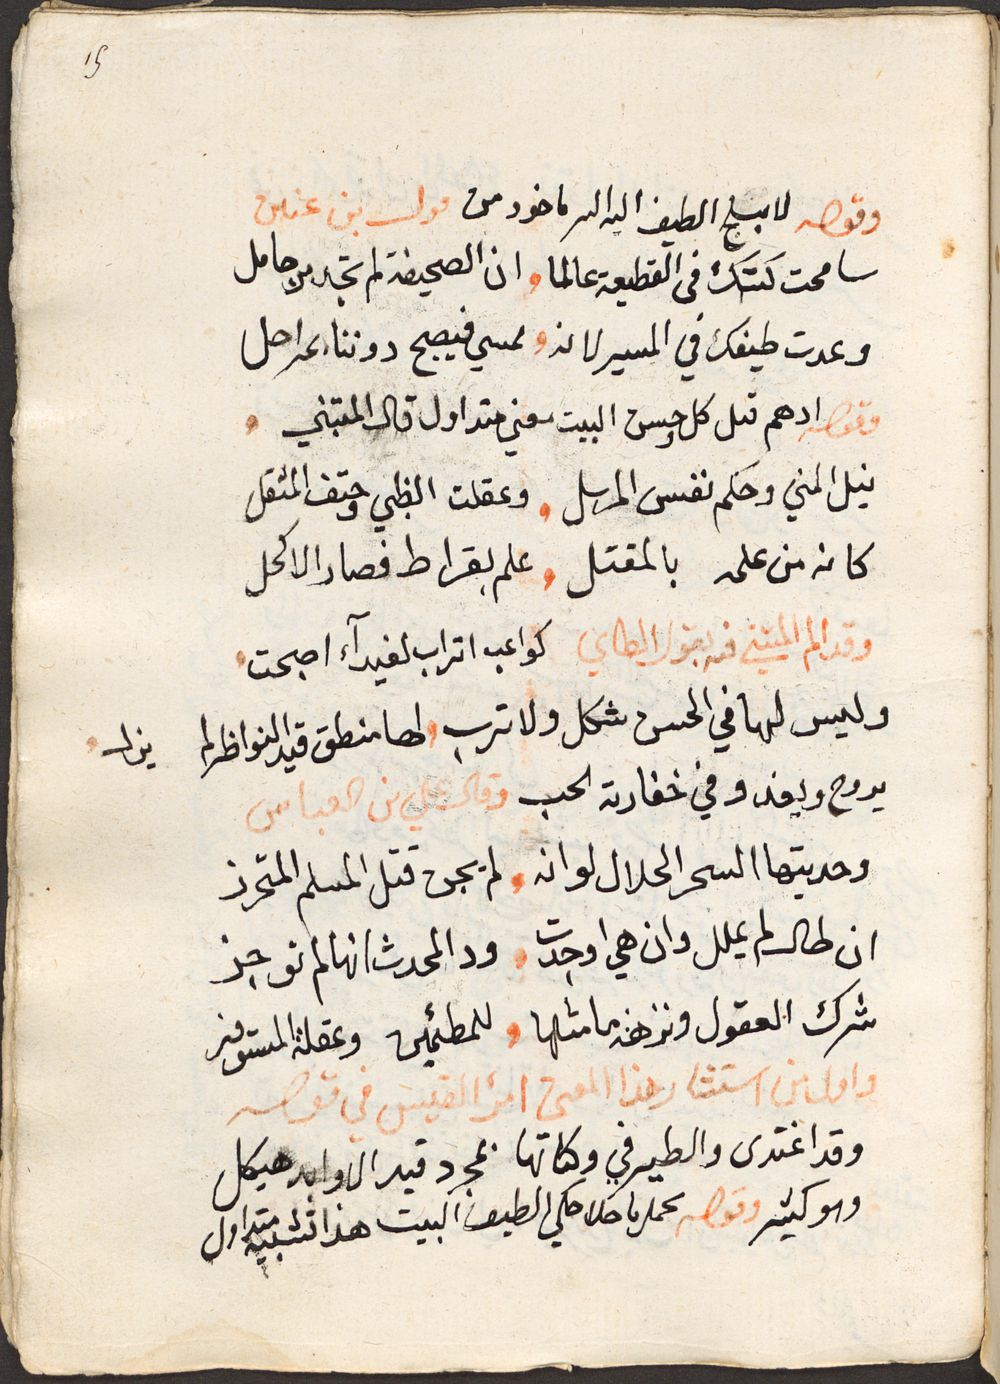 15
وقوله لا يبلغ الطيف اليه البيت ماخود من قول بن عنين
سامحت كتبك في القطيعة عالما ، ان الصحيفة لم تجد من حامل
وعدت طيفك في المسير لانه ، يمسي فيصبح دوننا بمراحل
وقوله ادهم قبل كل وحسن البيت معني متداول قال المتبني ،
نيل المني وحكم نفس المرسل ، وعقلت الظبي وحتف المثقل
كانه من علمه بالمقتل ، علم بقراط فصاد الاكحل
وقد الم المتبني فيه بقول الطاي كواعب اتراب لغيدآء اصبحت ،
وليس لها في الحسن شكل ولا ترب ، لها منطق قيد النواظر لم يزل ،
يروح ويغدو في خفارته الحب وقال علي بن العباس
وحديتها السحر الحلال لوانه ، لم يجن قتل المسلم المتحرز
ان طال لم يملل وان هي اوجدت ، ود المحدث انها لم توجز
شرك العقول ونزهة ما مثلها ، للمطمئين وعقلة المستوفز
واول من استثار هذا المعني امرء القيس في قوله
وقد اغتدى والطير في وكناتها بمجرد قيد الاوابد هيكل
وهو كثير وقوله يحمل ما كلا حكي الطيف البيت هذا تشبيه متداول